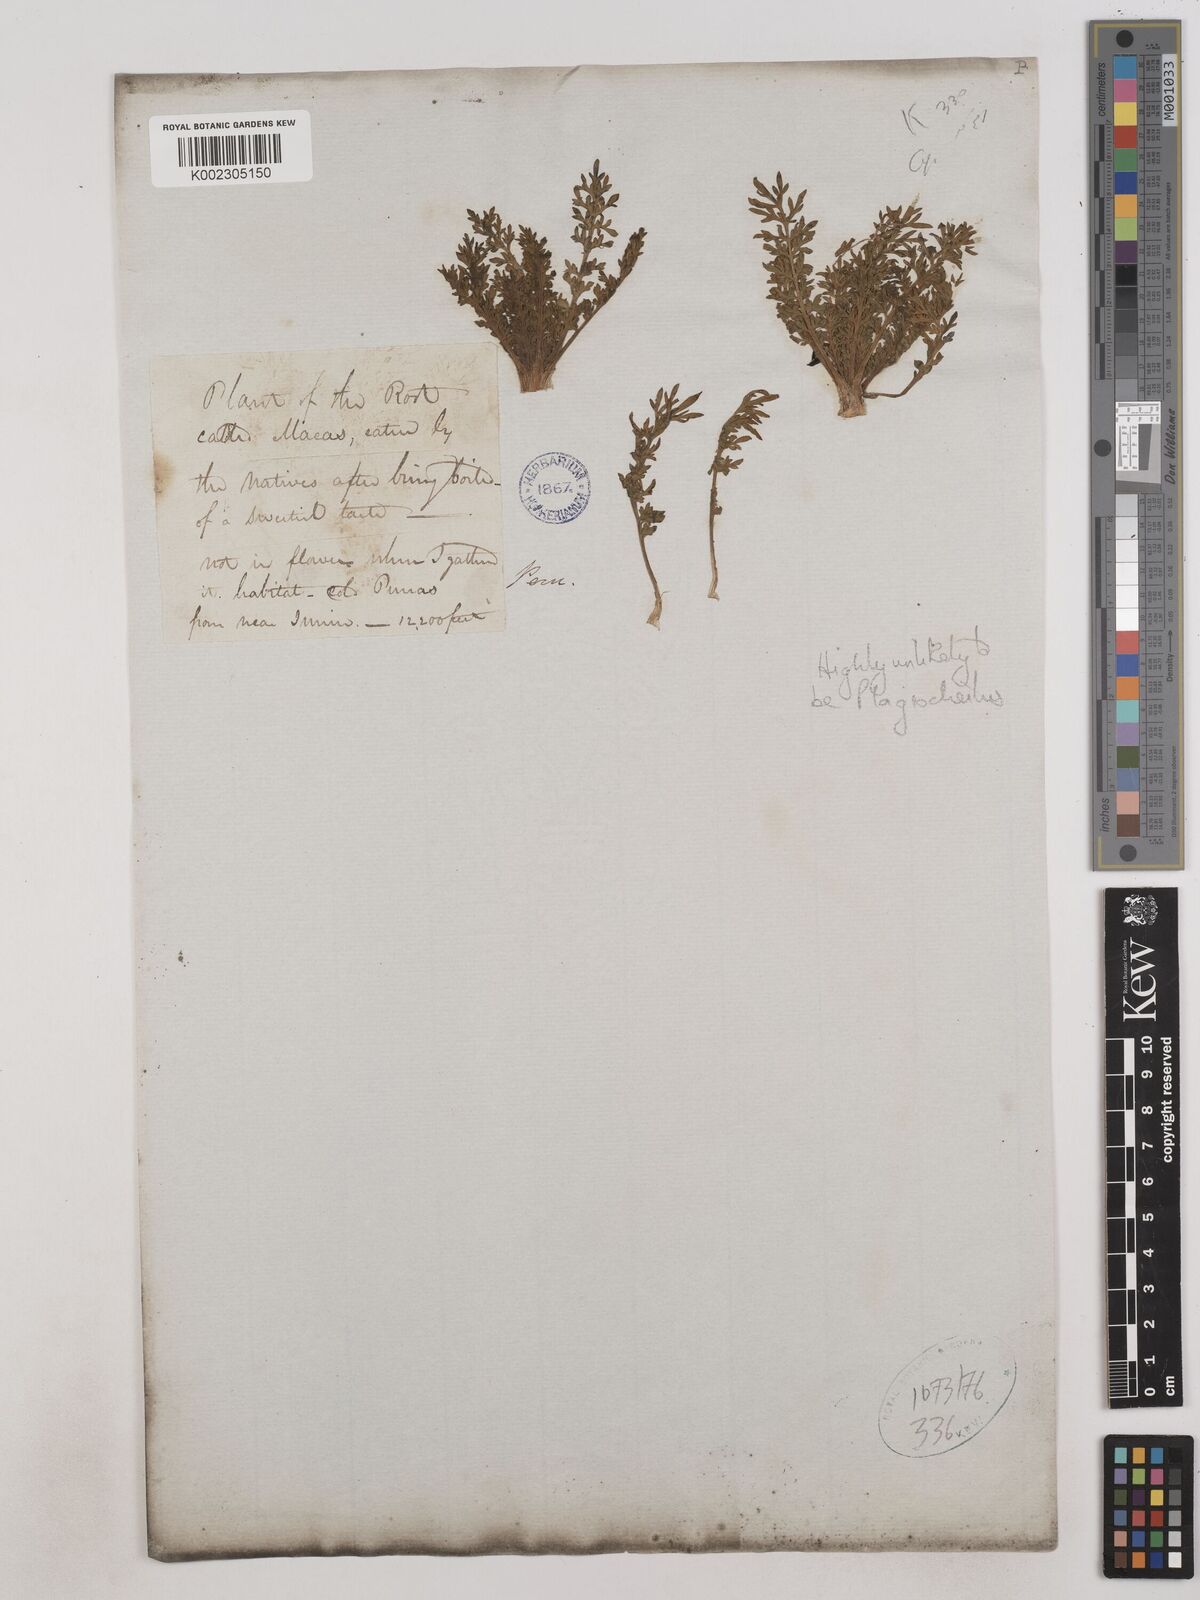 P
K 330
ROYAL BOTANIC GARDENS KEW
K002305150
Plant of the Root
called Macas, eaten by
the Natives after being boiled
of a sweetish taste —
not in flower when I gathered
it. habitat - cold Punas
from near Junin. — 12,200 feet
HERBARIUM
1867.
HOOKERIANUM
Peru.
Highly unlikely to
be Plagiocheilus
1073/76.
336
centimeters
inches
M001033
Density
Don Williams
Kew
Royal Botanic Gardens
copyright reserved
0 1 2 3 4 5 6 7 8 9 10
cm